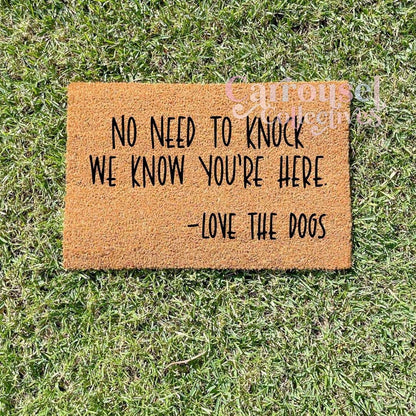 Carrousel
Collectives
NO NEED TO KNOCK
WE KNOW YOU'RE HERE.
-LOVE THE DOGS